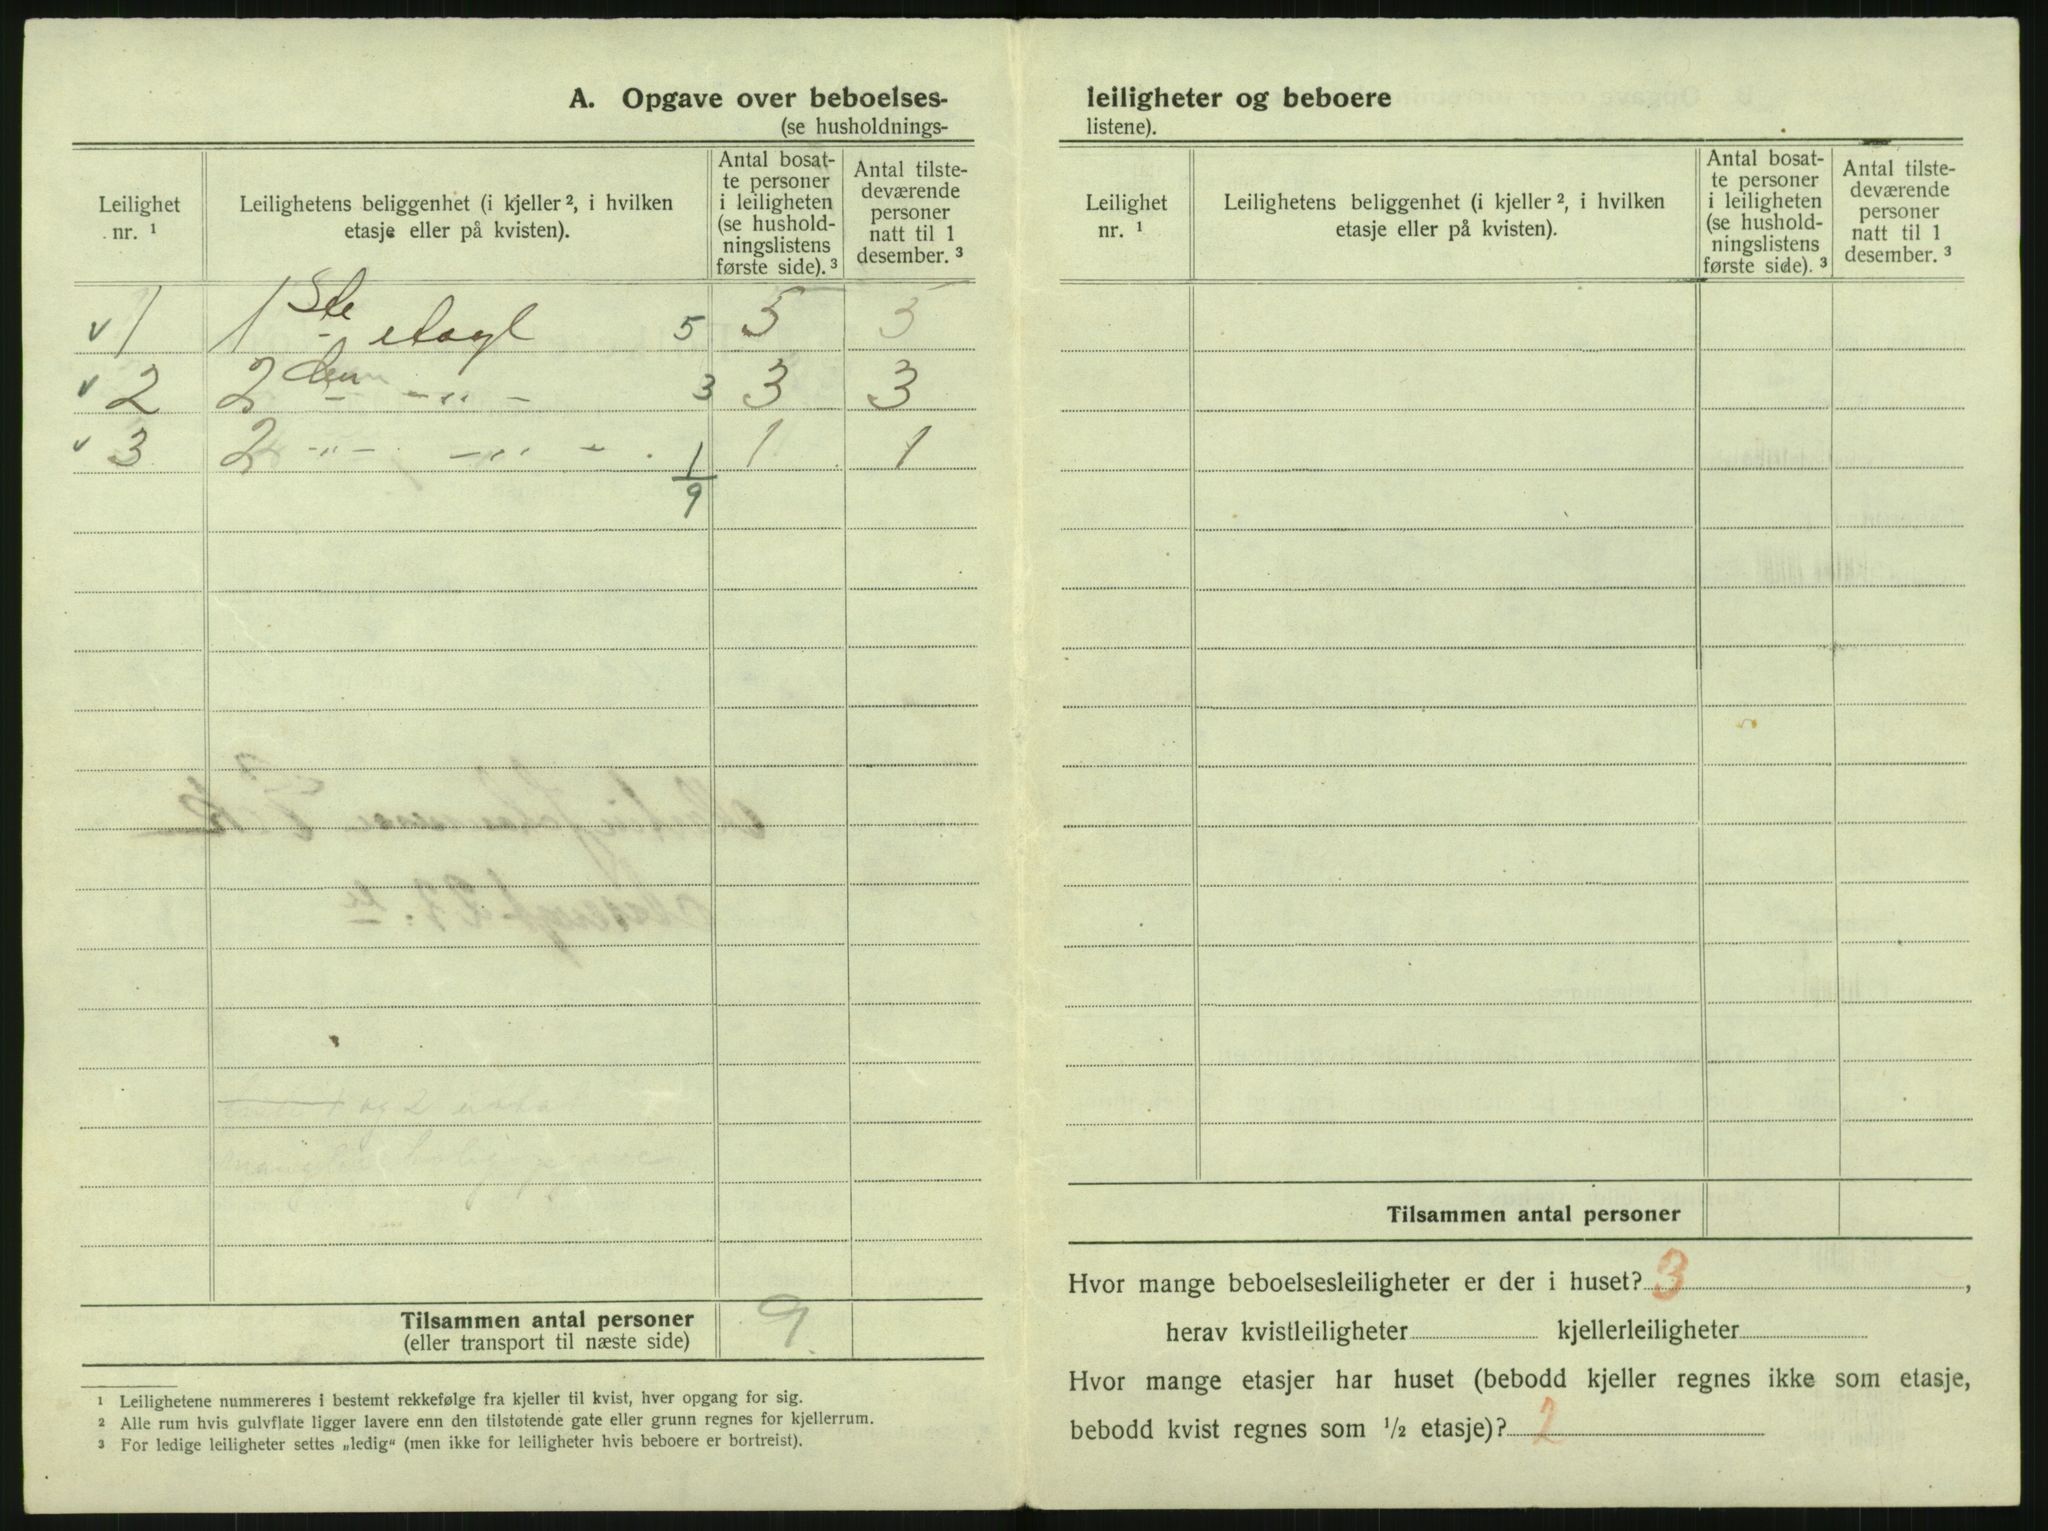 A. Opgave over beboelses-
(se husholdnings-
Leilighet nr. ¹
Leilighetens beliggenhet (i kjeller ², i hvilken etasje eller på kvisten).
Antal bosat-
te personer
i leiligheten
(se hushold-
ningslistens
første side). ³
Antal tilste-
deværende
personer
natt til 1
desember. ³
v 1 1 ste etage 5 5 5
v 2 2 den - „ - 3 3 3
v 3 2 - „ - - „ - 1 1 1
9
og 2
mangler
Tilsammen antal personer 9
(eller transport til næste side)
¹ Leilighetene nummereres i bestemt rekkefølge fra kjeller til kvist, hver opgang for sig.
² Alle rum hvis gulvflate ligger lavere enn den tilstøtende gate eller grunn regnes for kjellerrum.
³ For ledige leiligheter settes „ledig“ (men ikke for leiligheter hvis beboere er bortreist).
leiligheter og beboere
listene).
Leilighet nr. ¹
Leilighetens beliggenhet (i kjeller ², i hvilken etasje eller på kvisten).
Antal bosat-
te personer
i leiligheten
(se hushold-
ningslistens
første side). ³
Antal tilste-
deværende
personer
natt til 1
desember. ³
Tilsammen antal personer
Hvor mange beboelsesleiligheter er der i huset? 3 ,
herav kvistleiligheter kjellerleiligheter
Hvor mange etasjer har huset (bebodd kjeller regnes ikke som etasje,
bebodd kvist regnes som ½ etasje)? 2